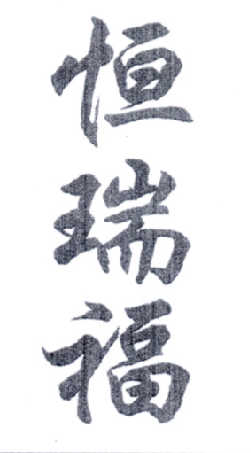 恒瑞福